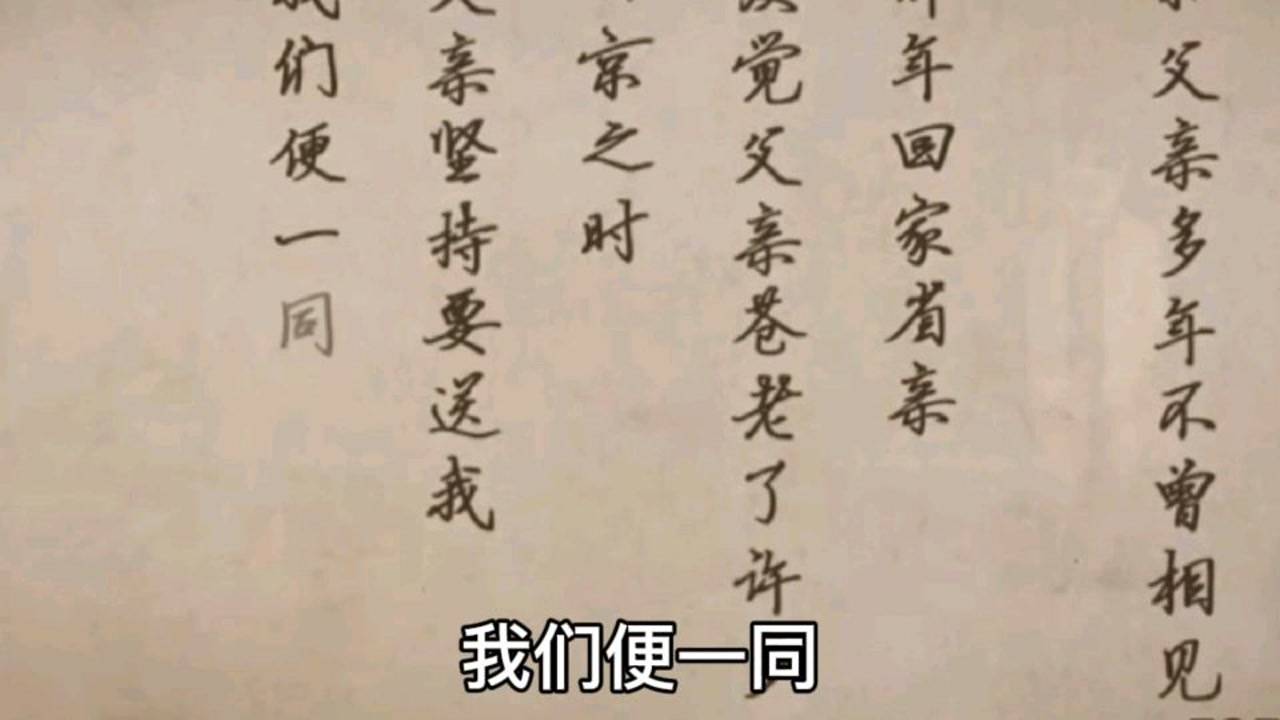 父亲多年不曾相见
年回家省亲
觉父亲苍老了许
京之时
亲坚持要送我
我们便一同
我们便一同